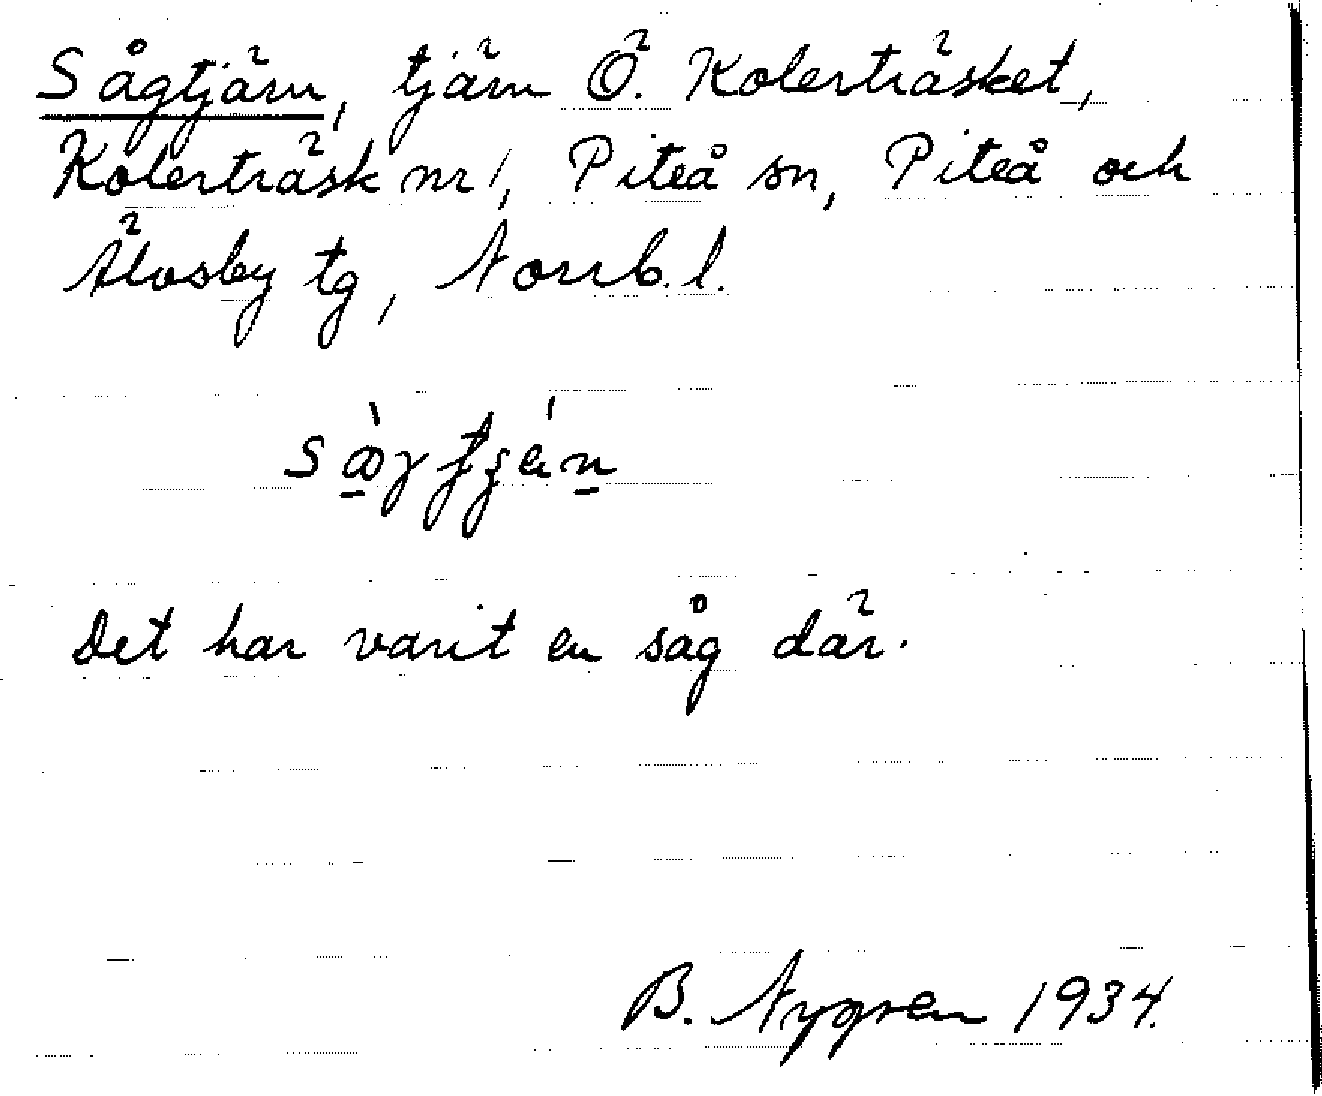 Sågtjärn, tjärn Ö. Kolerträsket,
Kolerträsk nr 1, Piteå sn, Piteå och
Älvsby tg, Norrb. l.
Det har varit en såg där.
B. Nygren 1934.